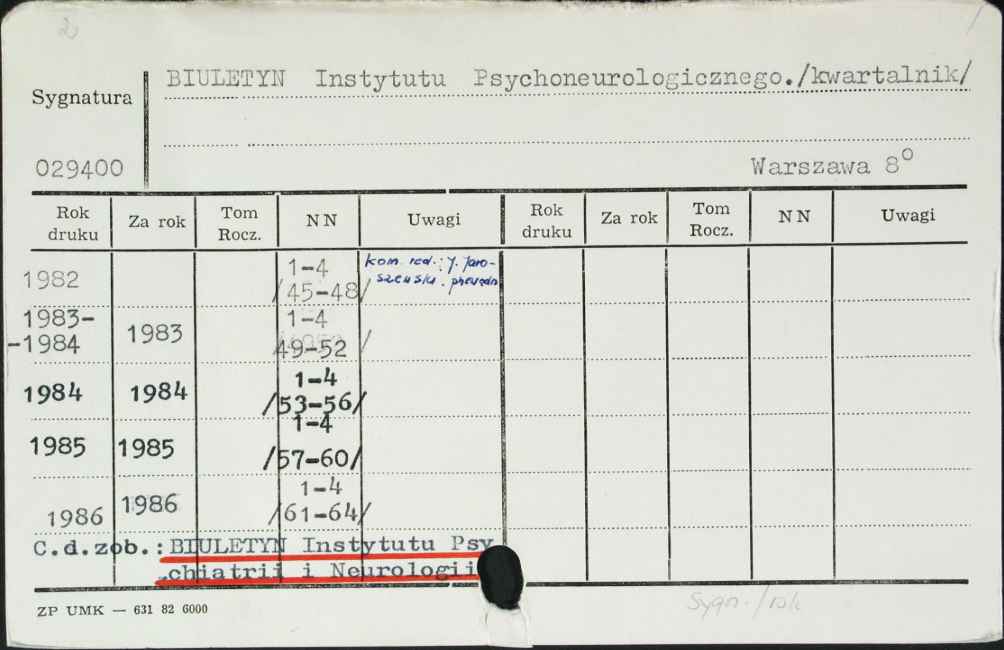 2
BIULETYN Instytutu Psychoneurologicznego./kwartalnik/
Sygnatura
029400
Warszawa 8°
Rok druku Za rok Tom Rocz. NN Uwagi Rok druku Za rok Tom Rocz. NN Uwagi
1982 1-4 /45-48/ kom. red.: J. Jaro-
szewski. przewodn
1983-
-1984 1983 1-4 /49-52 /
1984 1984 1-4 /53-56/
1985 1985 1-4 /57-60/
1986 1986 1-4 /61-64/
C.d.zob.: BIULETYN Instytutu Psy
chiatrii i Neurologii
ZP UMK — 631 82 6000
Sygn. / rok